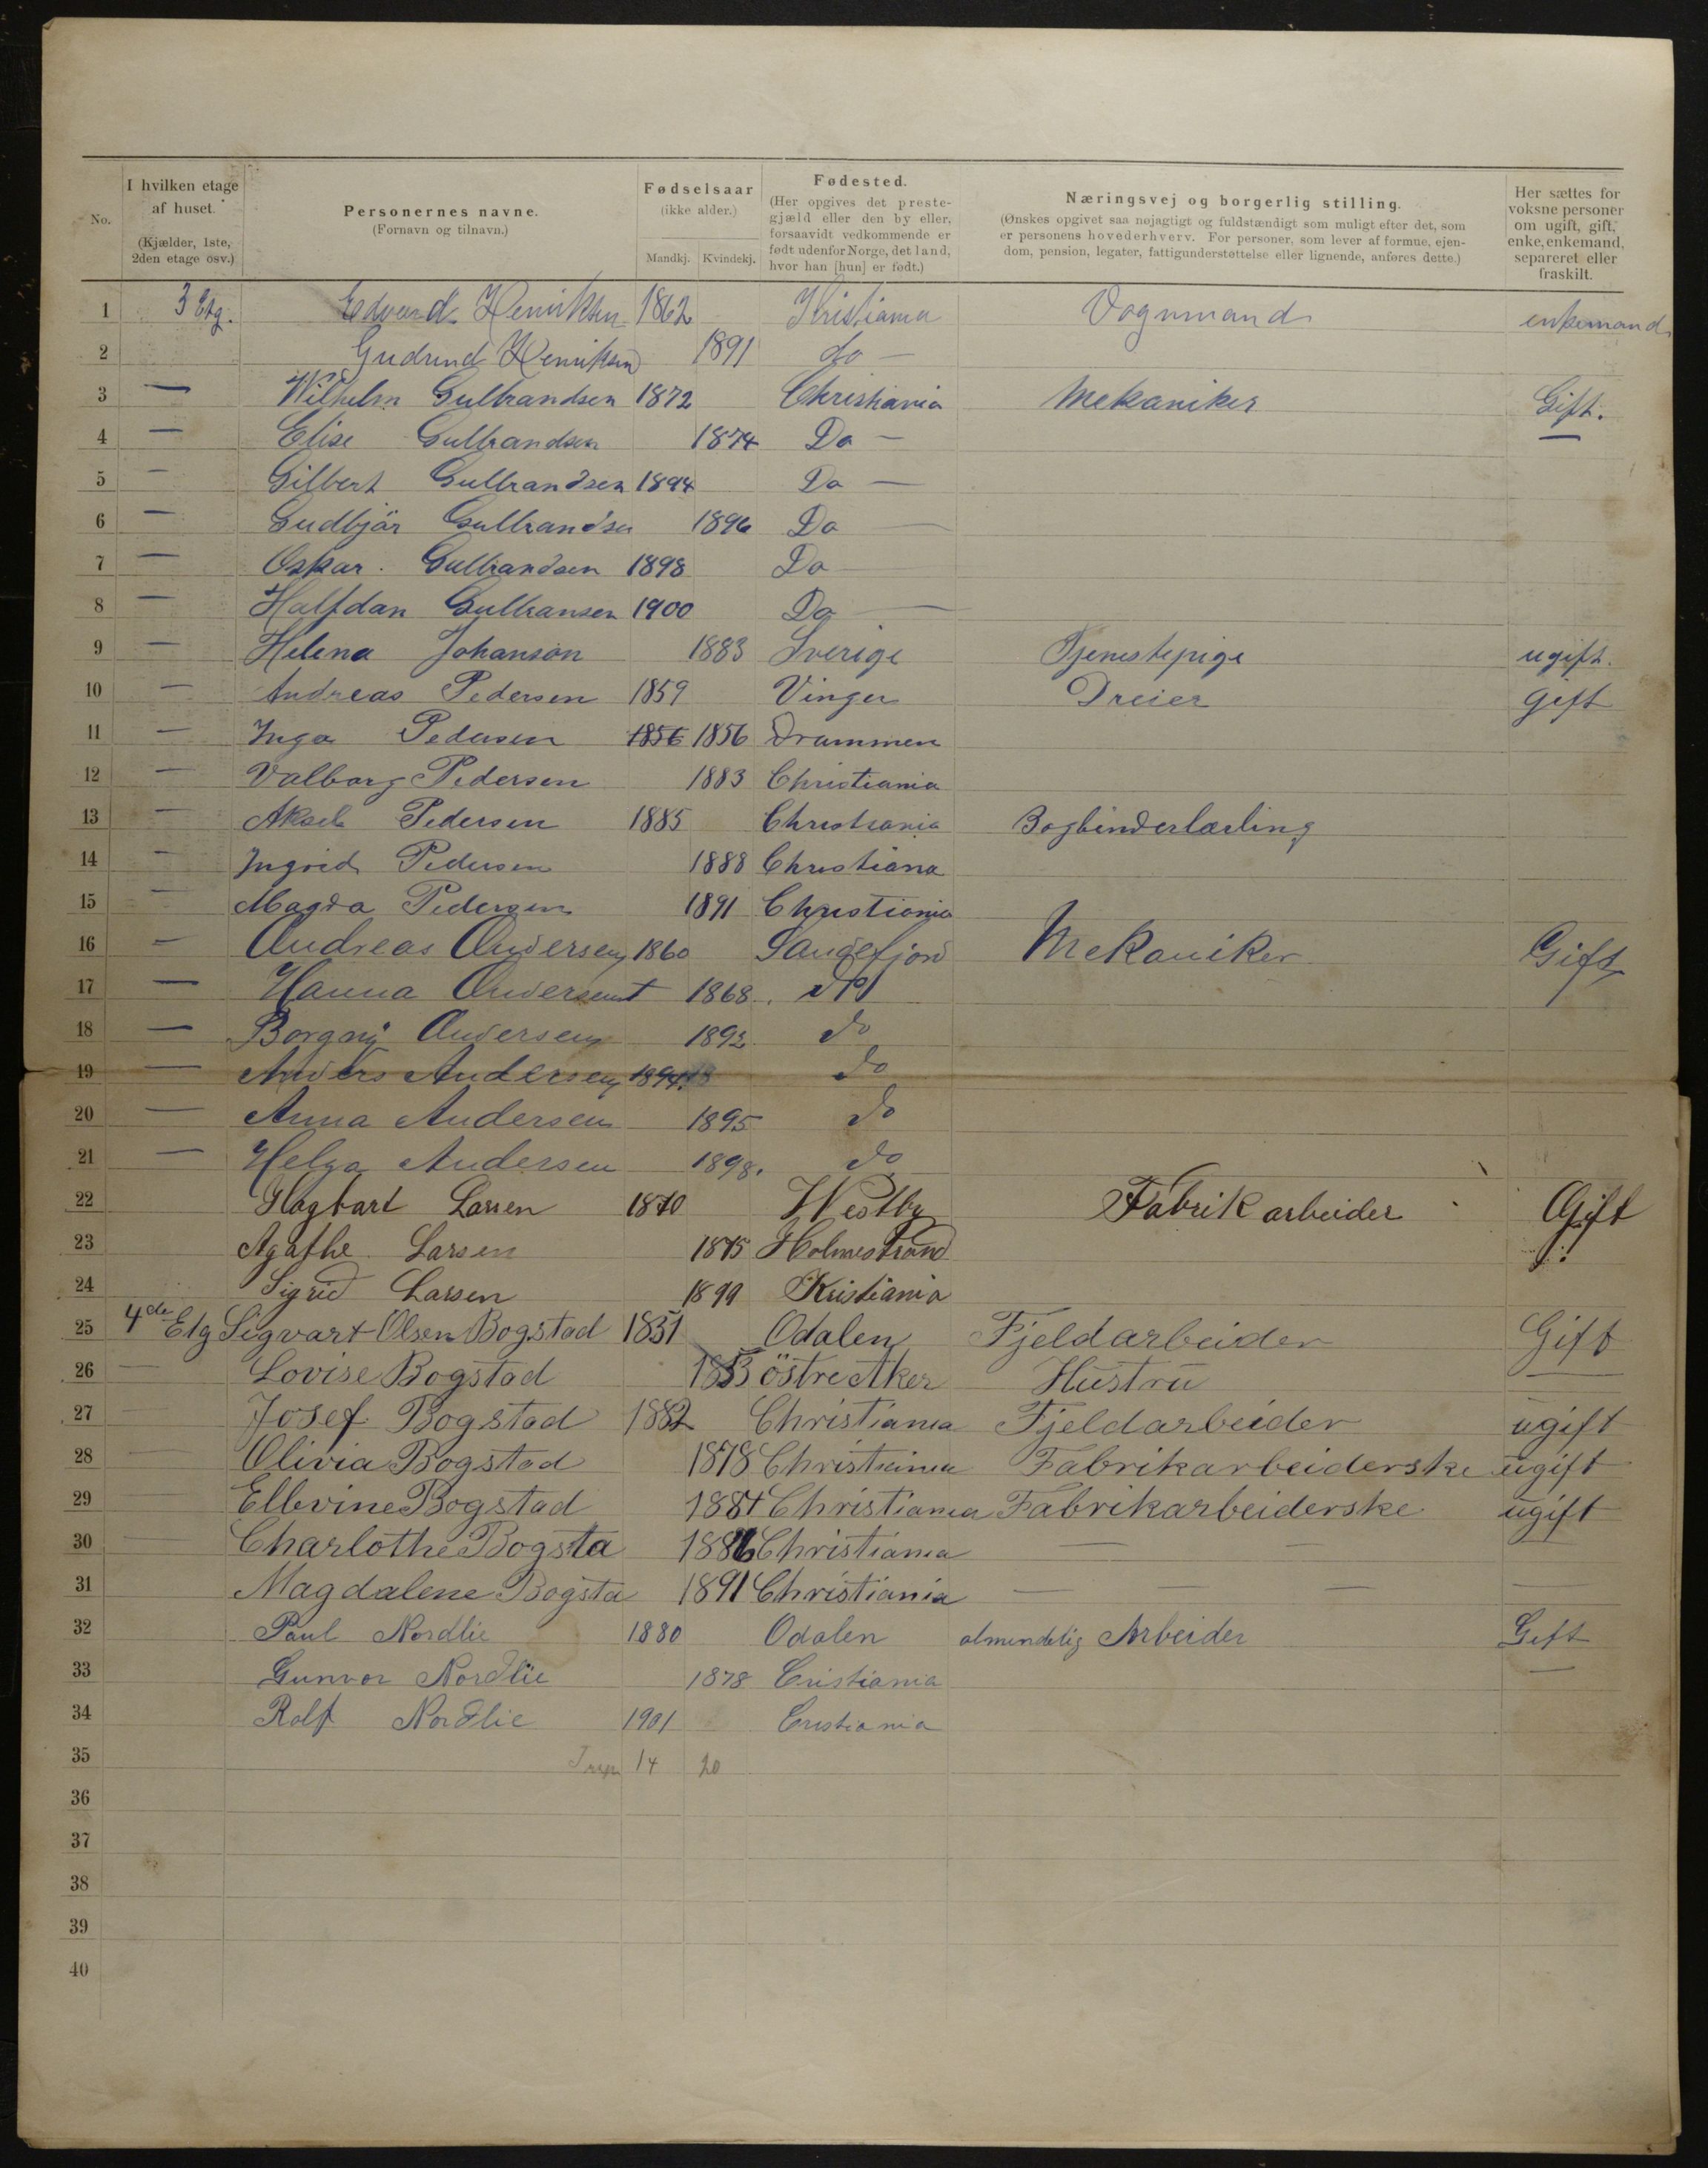 No. | I hvilken etage af huset. (Kjælder, 1ste, 2den etage osv.) | Personernes navne. (Fornavn og tilnavn.) | Fødselsaar (ikke alder.) Mandkj. Kvindekj. | Fødested. (Her opgives det prestegjæld eller den by eller, forsaavidt vedkommende er født udenfor Norge, det land, hvor han [hun] er født.) | Næringsvej og borgerlig stilling. (Ønskes opgivet saa nøjagtigt og fuldstændigt som muligt efter det, som er personens hovederhverv. For personer, som lever af formue, ejendom, pension, legater, fattigunderstøttelse eller lignende, anføres dette.) | Her sættes for voksne personer om ugift, gift, enke, enkemand, separeret eller fraskilt.
1 3 Etg. Edvard Henriksen 1862 Kristiania Vognmand enkemand
2 Gudrund Henriksen 1891 do —
3 — Wilhelm Gulbrandsen 1872 Christiania Mekaniker Gift.
4 — Elise Gulbrandsen 1874 Do — —
5 — Gilbert Gulbrandsen 1894 Do —
6 — Gudbjör Gulbrandse 1896 Do —
7 — Oskar. Gulbrandsen 1898 Do —
8 — Halfdan Gulbransen 1900 Do —
9 — Helena Johanson 1883 Sverige Tjenestepige ugift.
10 — Andreas Pedersen 1859 Vinger Dreier gift
11 — Inga Pedersen 1856 1856 Drammen
12 — Valborg Pedersen 1883 Christiania
13 — Aksel Pedersen 1885 Christiania Bogbinderlærling
14 — Ingrid Pedersen 1888 Christiana
15 — Magda Pedersen 1891 Christiania
16 — Andreas Andersen 1860 Sandefjord Mekaniker Gift
17 — Hanna Andersen 1868.
18 — Borgny Andersen 1892 do
19 — Anders Andersen 1894. do
20 — Anna Andersen 1895 do
21 — Helga Andersen 1898. do
22 Hagbart Larsen 1870 Westby Fabrik arbeider Gift
23 Agathe Larsen 1875 Holmestrand
24 Sigrid Larsen 1899 Kristiania
25 4de Etg Sigvart Olsen Bogstad 1851 Odalen Fjeldarbeider Gift
26 — Lovise Bogstad 1853 östre Aker Hustru —
27 — Josef Bogstad 1882 Christiania Fjeldarbeider ugift
28 — Olivia Bogstad 1878 Christiania Fabrikarbeiderske ugift
29 — Ellevine Bogstad 1884 Christiania Fabrikarbeiderske ugift
30 — Charlothe Bogsta 1886 Christiania — — —
31 Magdalene Bogsta 1891 Christiania — — — —
32 Paul Nordlie 1880 Odalen almindelig Arbeider Gift
33 Gunvor Nordlie 1878 Cristiania —
34 Rolf Nordlie 1901 Cristiania
35 14 20
36
37
38
39
40